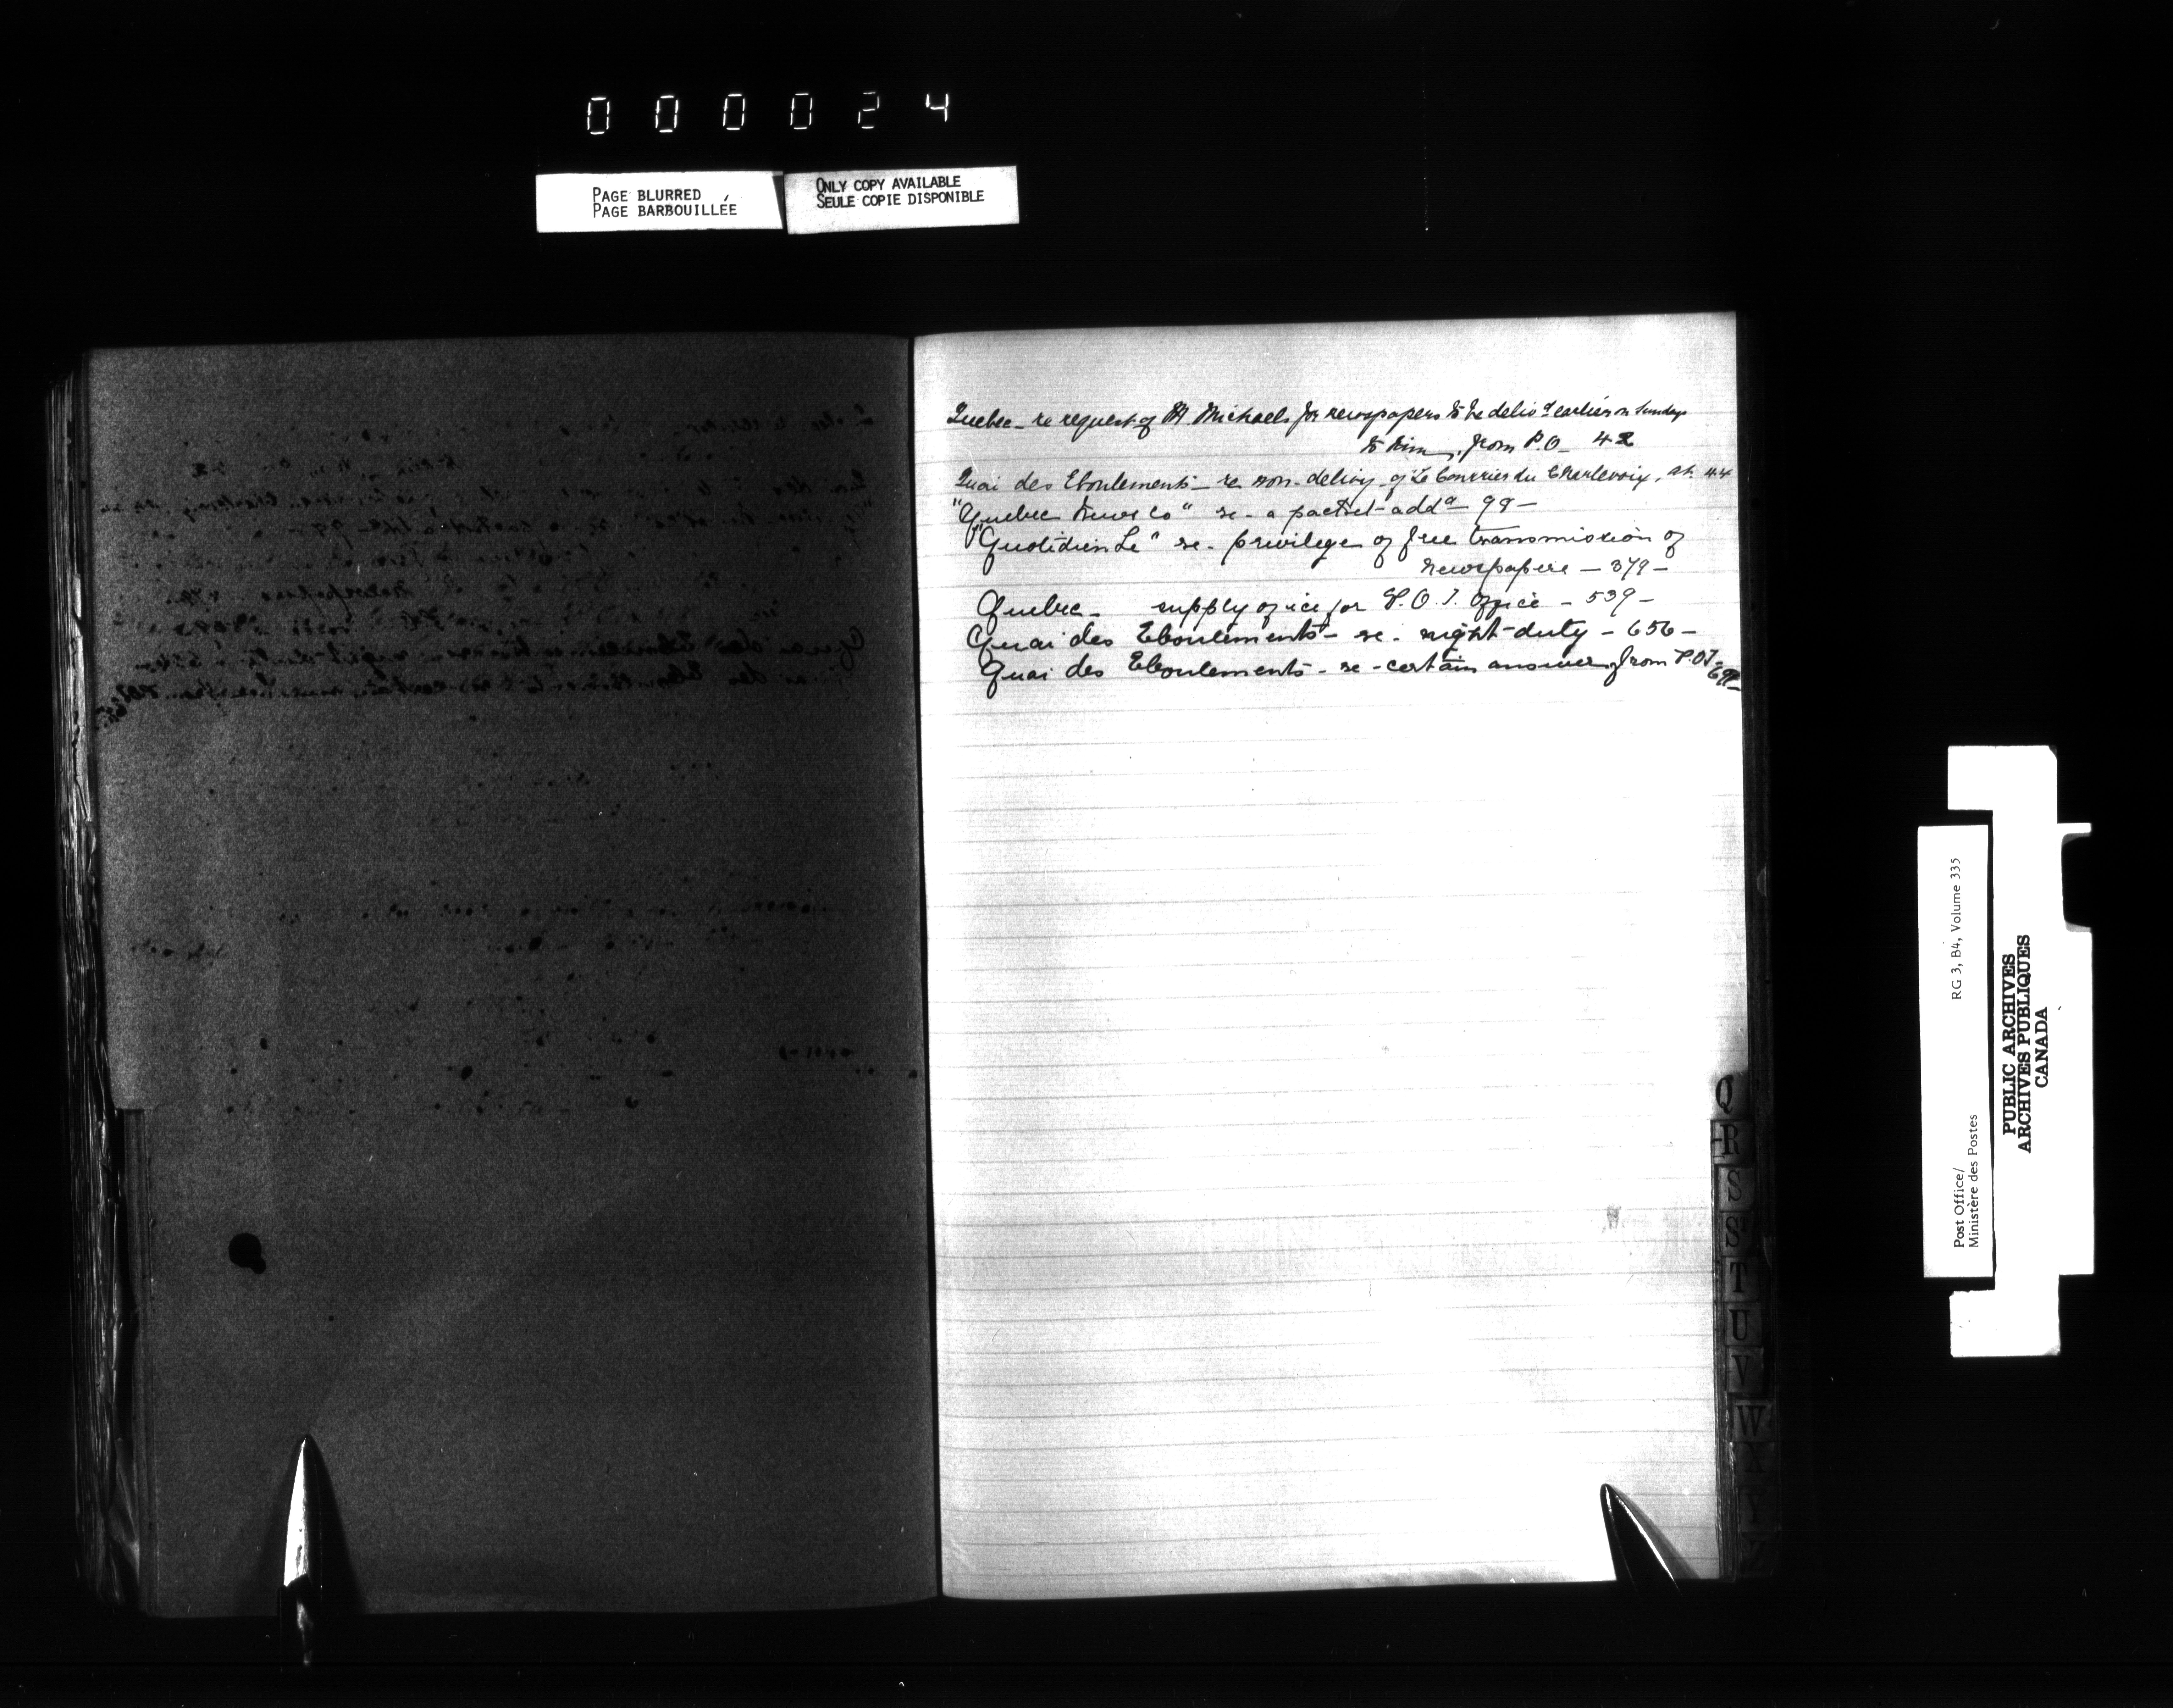 000024
PAGE BLURRED
PAGE BARBOUILLÉE
ONLY COPY AVAILABLE
SEULE COPIE DISPONIBLE
Quebec - re request of M Michaels for newspapers to be deliv'd earlier on Sundays
to him, from P.O. 42
Quai des Eboulements - re non-delivy of "Le Courrier du Charlevoix, at. 44
"Quebec News Co" re - a packet add'd 99 -
"Quotidien Le" re - privilege of free transmission of
newspapers - 379 -
Quebec - supply of ice for P.O.I. Office - 539 -
Quai des Eboulements - re - night-duty - 656 -
Quai des Eboulements - re - certain answer from P.O.I -
Q
R
S
T
U
V
W
X
Y
Z
Post Office/
Ministère des Postes
RG 3, B4, Volume 335
PUBLIC ARCHIVES
ARCHIVES PUBLIQUES
CANADA